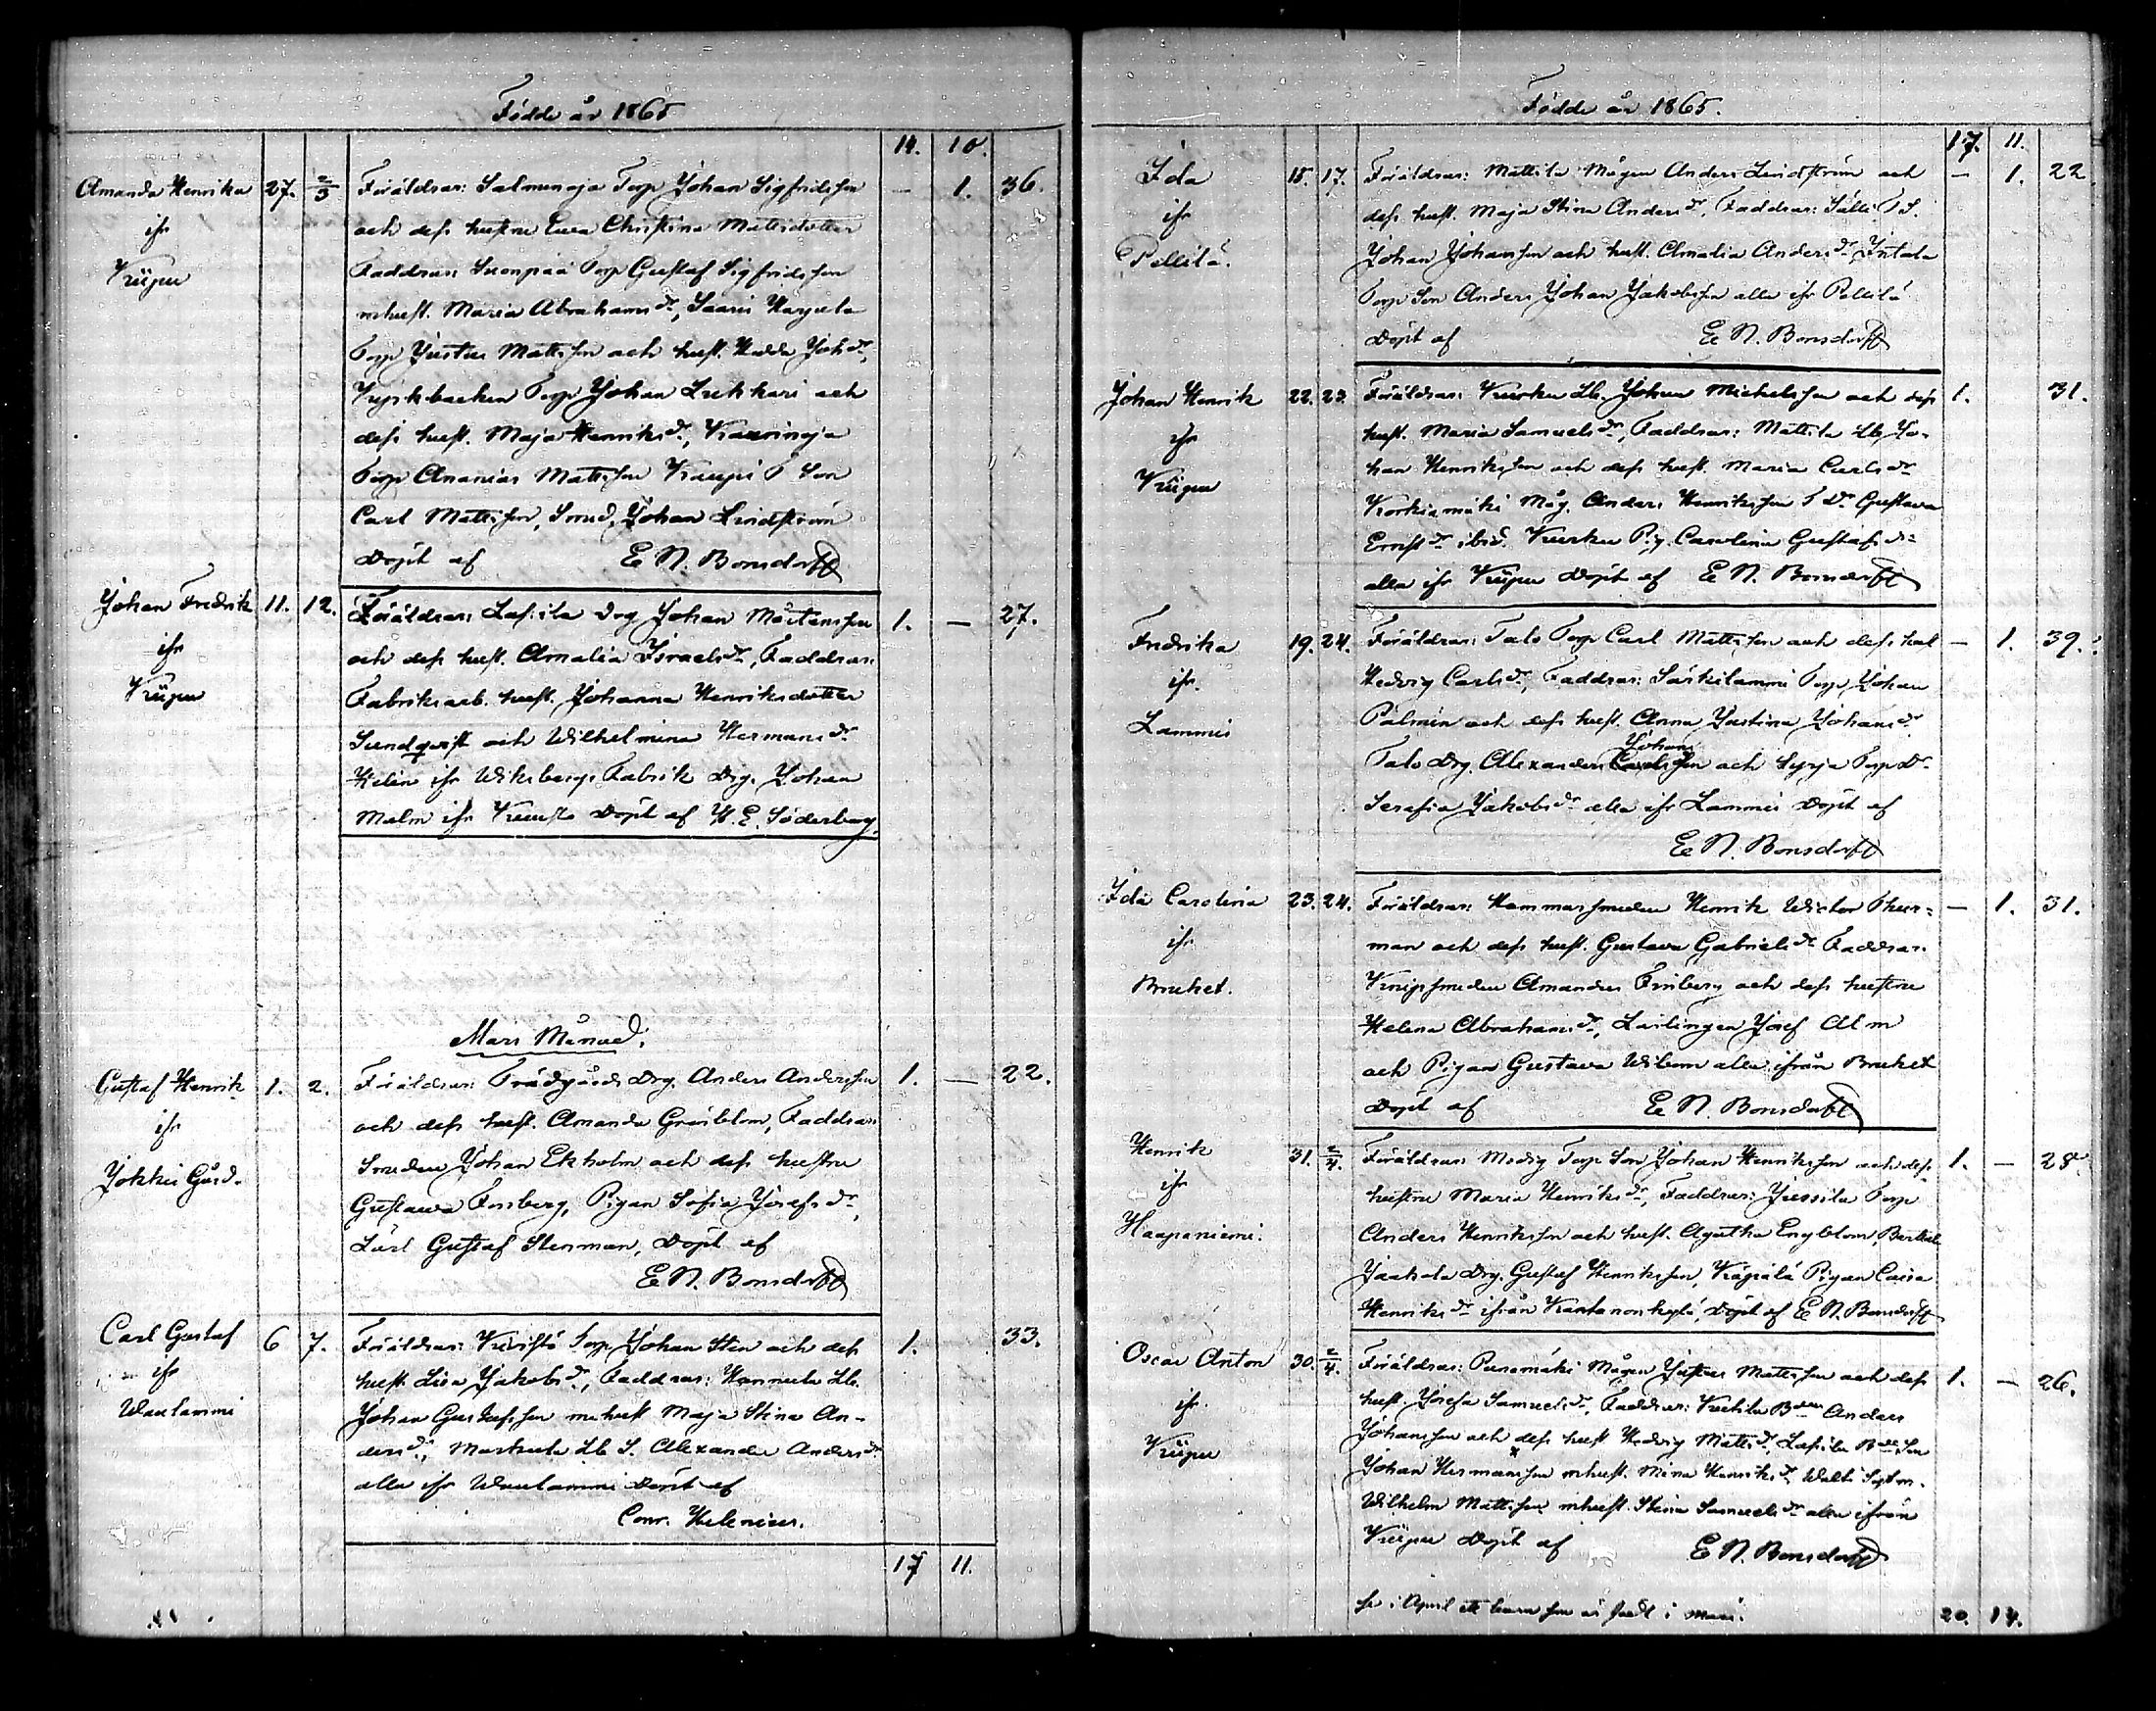 Födde år 1865
14. 10.
Amanda Henrika 27. 2/3 Föräldrar: Salmenoja Torp Johan Sigfridsson — 1. 36.
ifr och dess hustru Eva Christina Mattsdotter
Kiipu Faddrar: Suonpää Torp Gustaf Sigfridsson
m hust. Maria Abrahams dr, Saari Harjula
Torp Justus Mattsson och hust. Hedda Joh dr,
backen Torp Johan Lukkari och
dess hust. Maja Henriks dr,
Torp Ananias Mattsson Kaupi T Son
Carl Mattsson, Smed. Johan Lindström
Döpt af E N. Bonsdorff
Johan Fredrik 11. 12. Föräldrar: Lassila Drg Johan Mårtensson 1. — 27.
ifr och dess hust. Amalia Israels dr, Faddrar:
Kiipu Fabriksarb. hust. Johanna Henriksdotter
Sundqvist och Wilhelmina Hermans dr
Helin ifr Wiksbergs Fabrik Drg. Johan
Malm ifr Döpt af H. E. Söderberg.
Mars Månad.
Gustaf Henrik 1. 2. Föräldrar: Trädgårds Drg. Anders Andersson 1. — 22.
ifr och dess hust. Amanda Grönblom, Faddrar:
Jokkis Gård. Smeden Johan Ekholm och dess hustru
Gustawa Forsberg, Pigan Sofia Josefs dr,
Lärl Gustaf Stenman, Döpt af
E N. Bonsdorff
Carl Gustaf 6 7. Föräldrar: Torp. Johan Sten och dess 1. 33.
ifr hust. Lisa Jakobs dr, Faddrar: Hannula Lb.
Waulammi Johan Gustafsson m hust Maja Stina An-
ders dr, Markula Lb S. Alexander Anders dr
alla ifr Waulammi Döpt af
Conr. Helenius.
17 11.
Födde år 1865.
17. 11.
Ida 15. 17. Föräldrar: Mattila Mågen Anders Lindström och — 1. 22.
ifr dess hust. Maja Stina Anders dr, Faddrar: Sälli T S.
Pellilä. Johan Johansson och hust. Amalia Anders dr, Intala
Torp Son Anders Johan Jakobsson alla ifr Pellilä
Döpt af E N. Bonsdorff
Johan Henrik 22. 23. Föräldrar: Kurku Lb. Johan Michelsson och dess 1. 31.
ifr hust. Maria Samuels dr, Faddrar: Mattila Lb, Jo-
Kiipu han Henriksson och dess hust. Maria Carls dr
Korkiamäki Måg. Anders Henriksson T Dr Gustava
Ernst dr ibid. Kurku Pig. Carolina Gustafs dr
alla ifr Kiipu Döpt af E N. Bonsdorff
Fredrika 19. 24. Föräldrar: Talo Torp Carl Mattsson och dess hust — 1. 39.
ifr. Hedvig Carls dr, Faddrar: Särkilammi Torp, Johan
Lammis Palmin och dess hust. Anna Justina Johans dr
Johans
Talo Drg. Alexander Carlsson och Syrja Torp Dr
Serafia Jakobs dr alla ifr Lammis Döpt af
E N. Bonsdorff
Ida Carolina 23. 24. Föräldrar: Hammarsmeden Henrik Wictor Thur- — 1. 31.
ifr man och dess hust. Gustava Gabriels dr Faddrar:
Bruket. Knipsmeden Amandus Finberg och dess hustru
Helena Abrahams dr, Lärlingen Josef Alm
och Pigan Gustava Wibom alla ifrån Bruket
Döpt af E N. Bonsdorff
Henrik 31. 2/4. Föräldrar: Modig Torp Son Johan Henriksson och dess 1. — 28.
ifr hustru Maria Henriks dr, Faddrar: Jussila Torp
Haapaniemi. Anders Henriksson och hust. Agatha Engblom,
Jaakola Drg. Gustaf Henriksson, Pigan Caisa
Henriks dr ifrån Kartanonkylä, Döpt af E N. Bonsdorff
Oscar Anton 30. 2/4. Föräldrar: Punamäki Mågen Justus Mattsson och dess 1. — 26.
ifr. hust. Josefa Samuels dr, Faddrar: Anders
Kiipu Johansson och dess hust Hedvig Matts dr, Lassila Son
Johan Hermansson m hust. Mina Henriks dr,
Wilhelm Mattsson m hust. Stina Samuels dr alla ifrån
Kiipu Döpt af E N. Bonsdorff
se i April ett barn som är födt i mars.
20. 14.